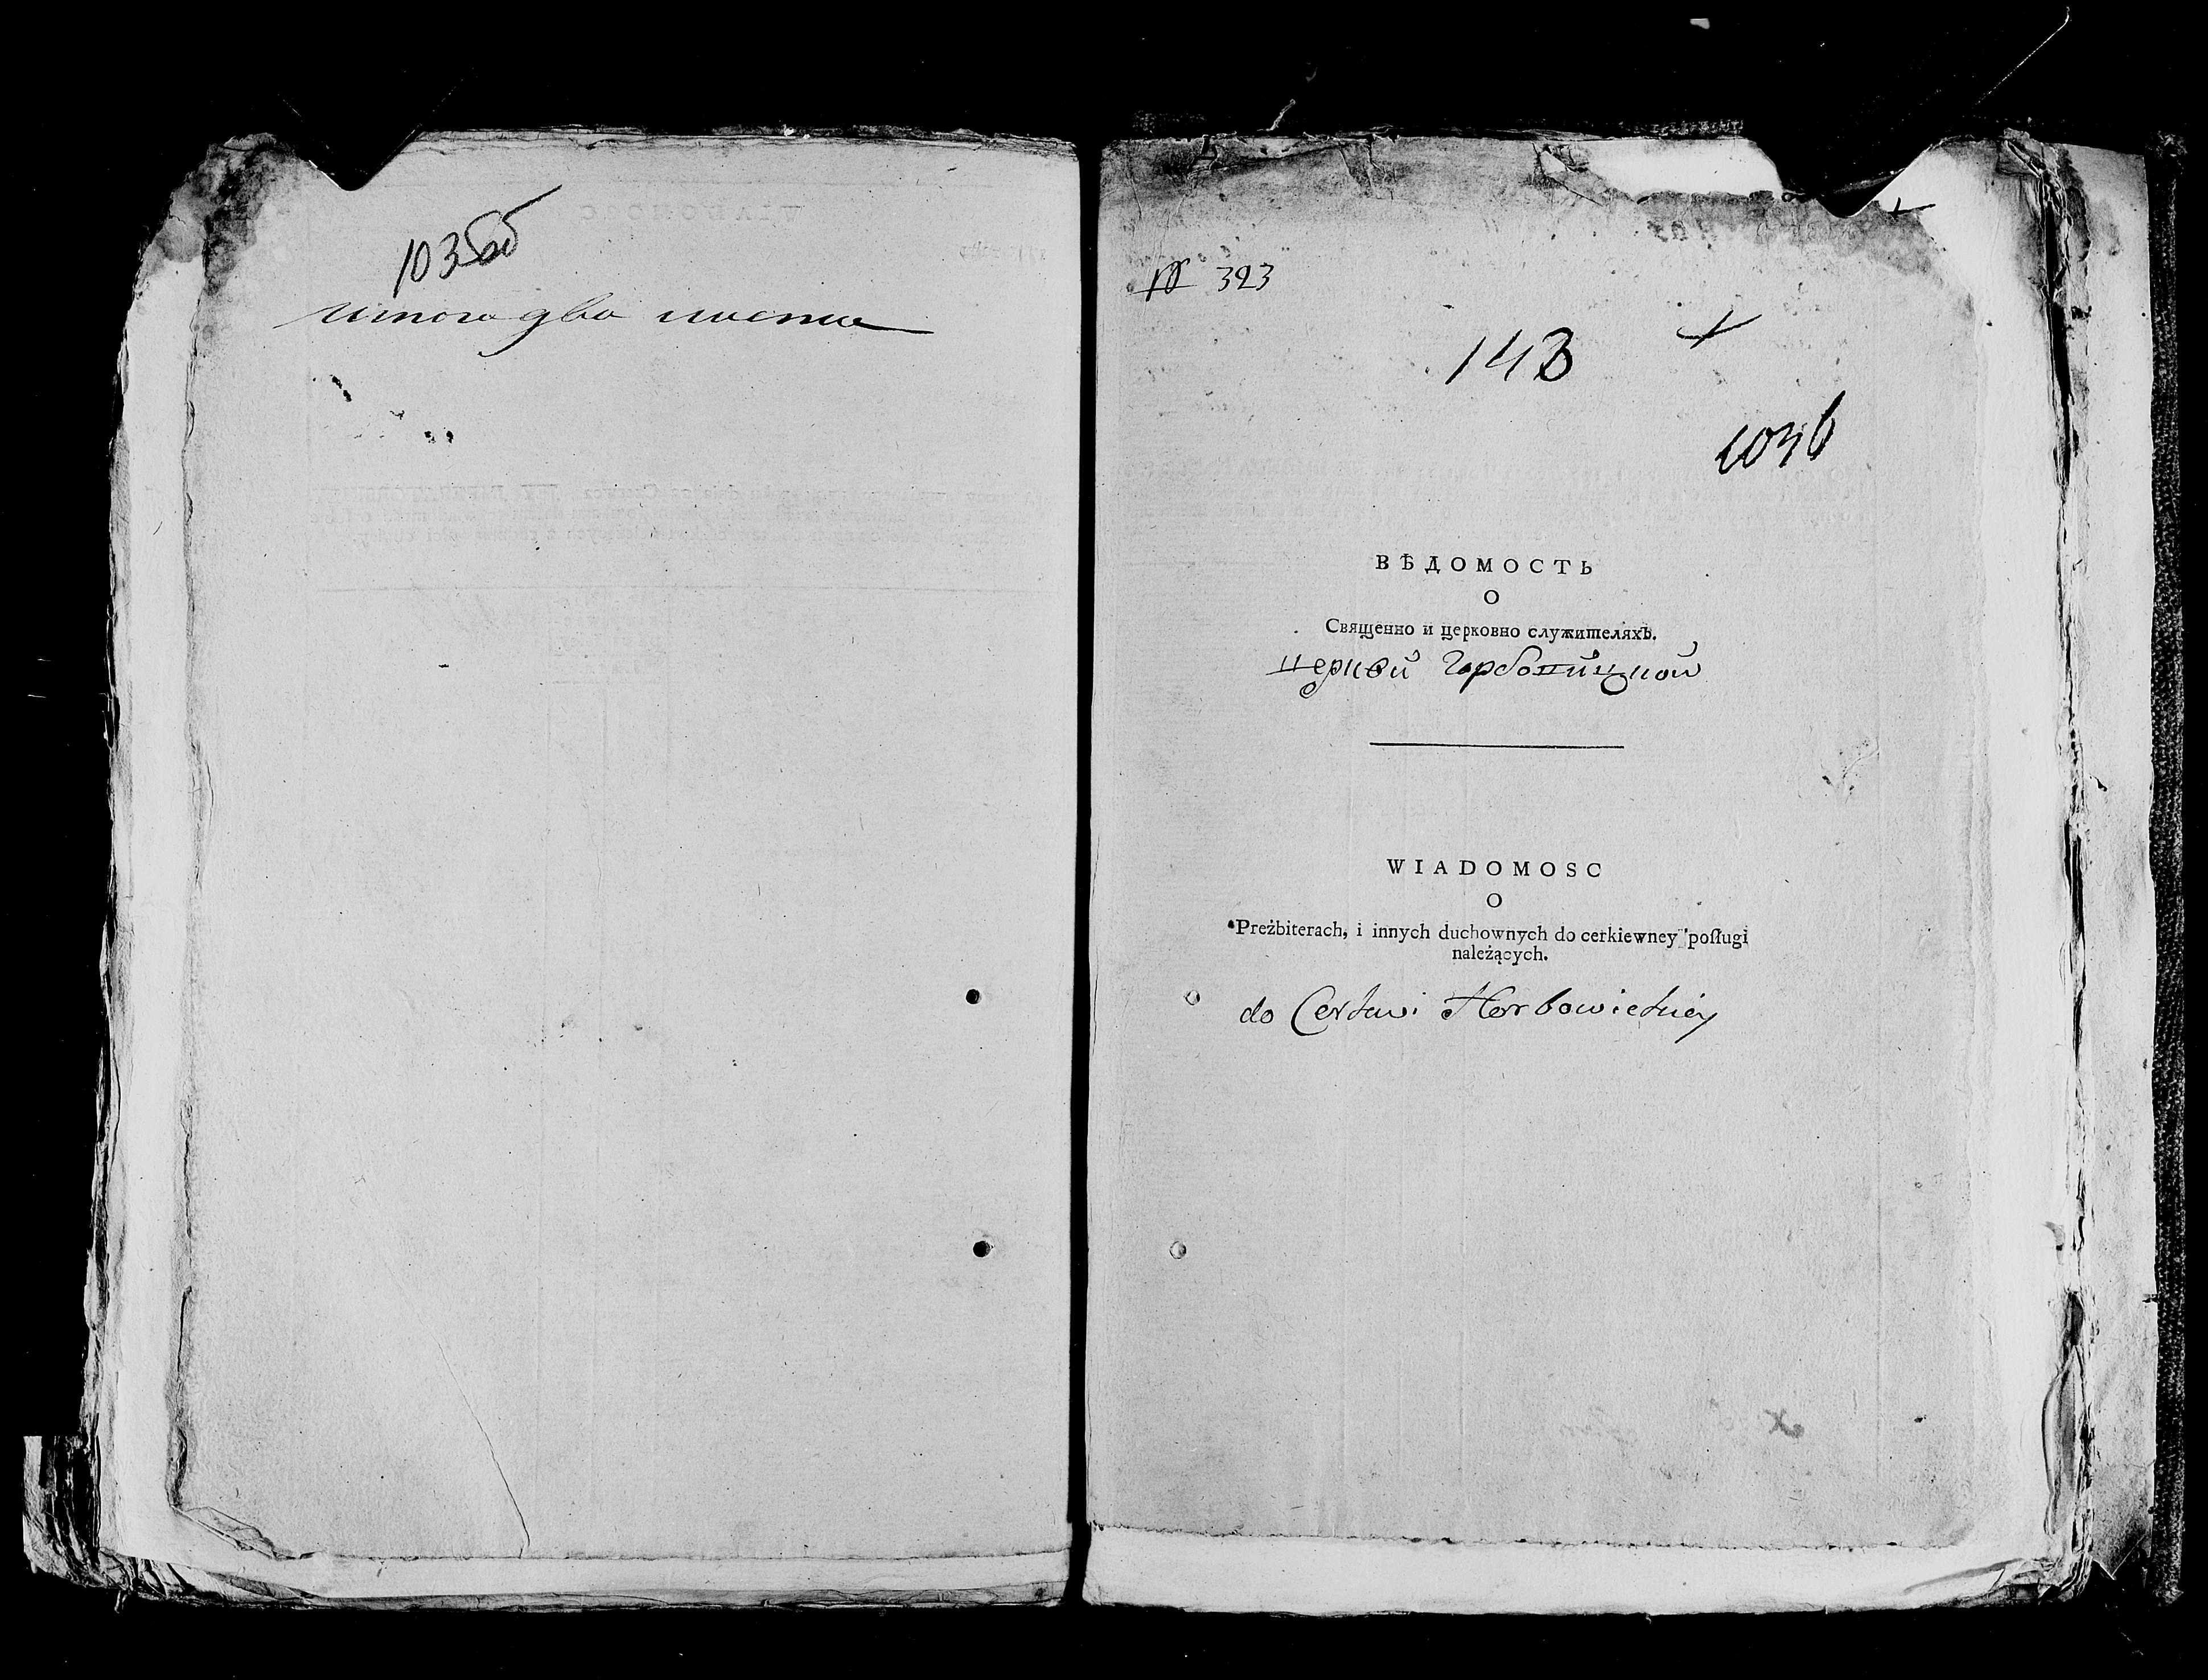 103об
итого два листа
№ 323
143
1036
ВѢДОМОСТЬ
О
Священно и церковно служителяхъ.
церкви Горбовицкой
WIADOMOSC
O
Preżbiterach, i innych duchownych do cerkiewney posługi
należących.
do Cerkwi Horbowickiey